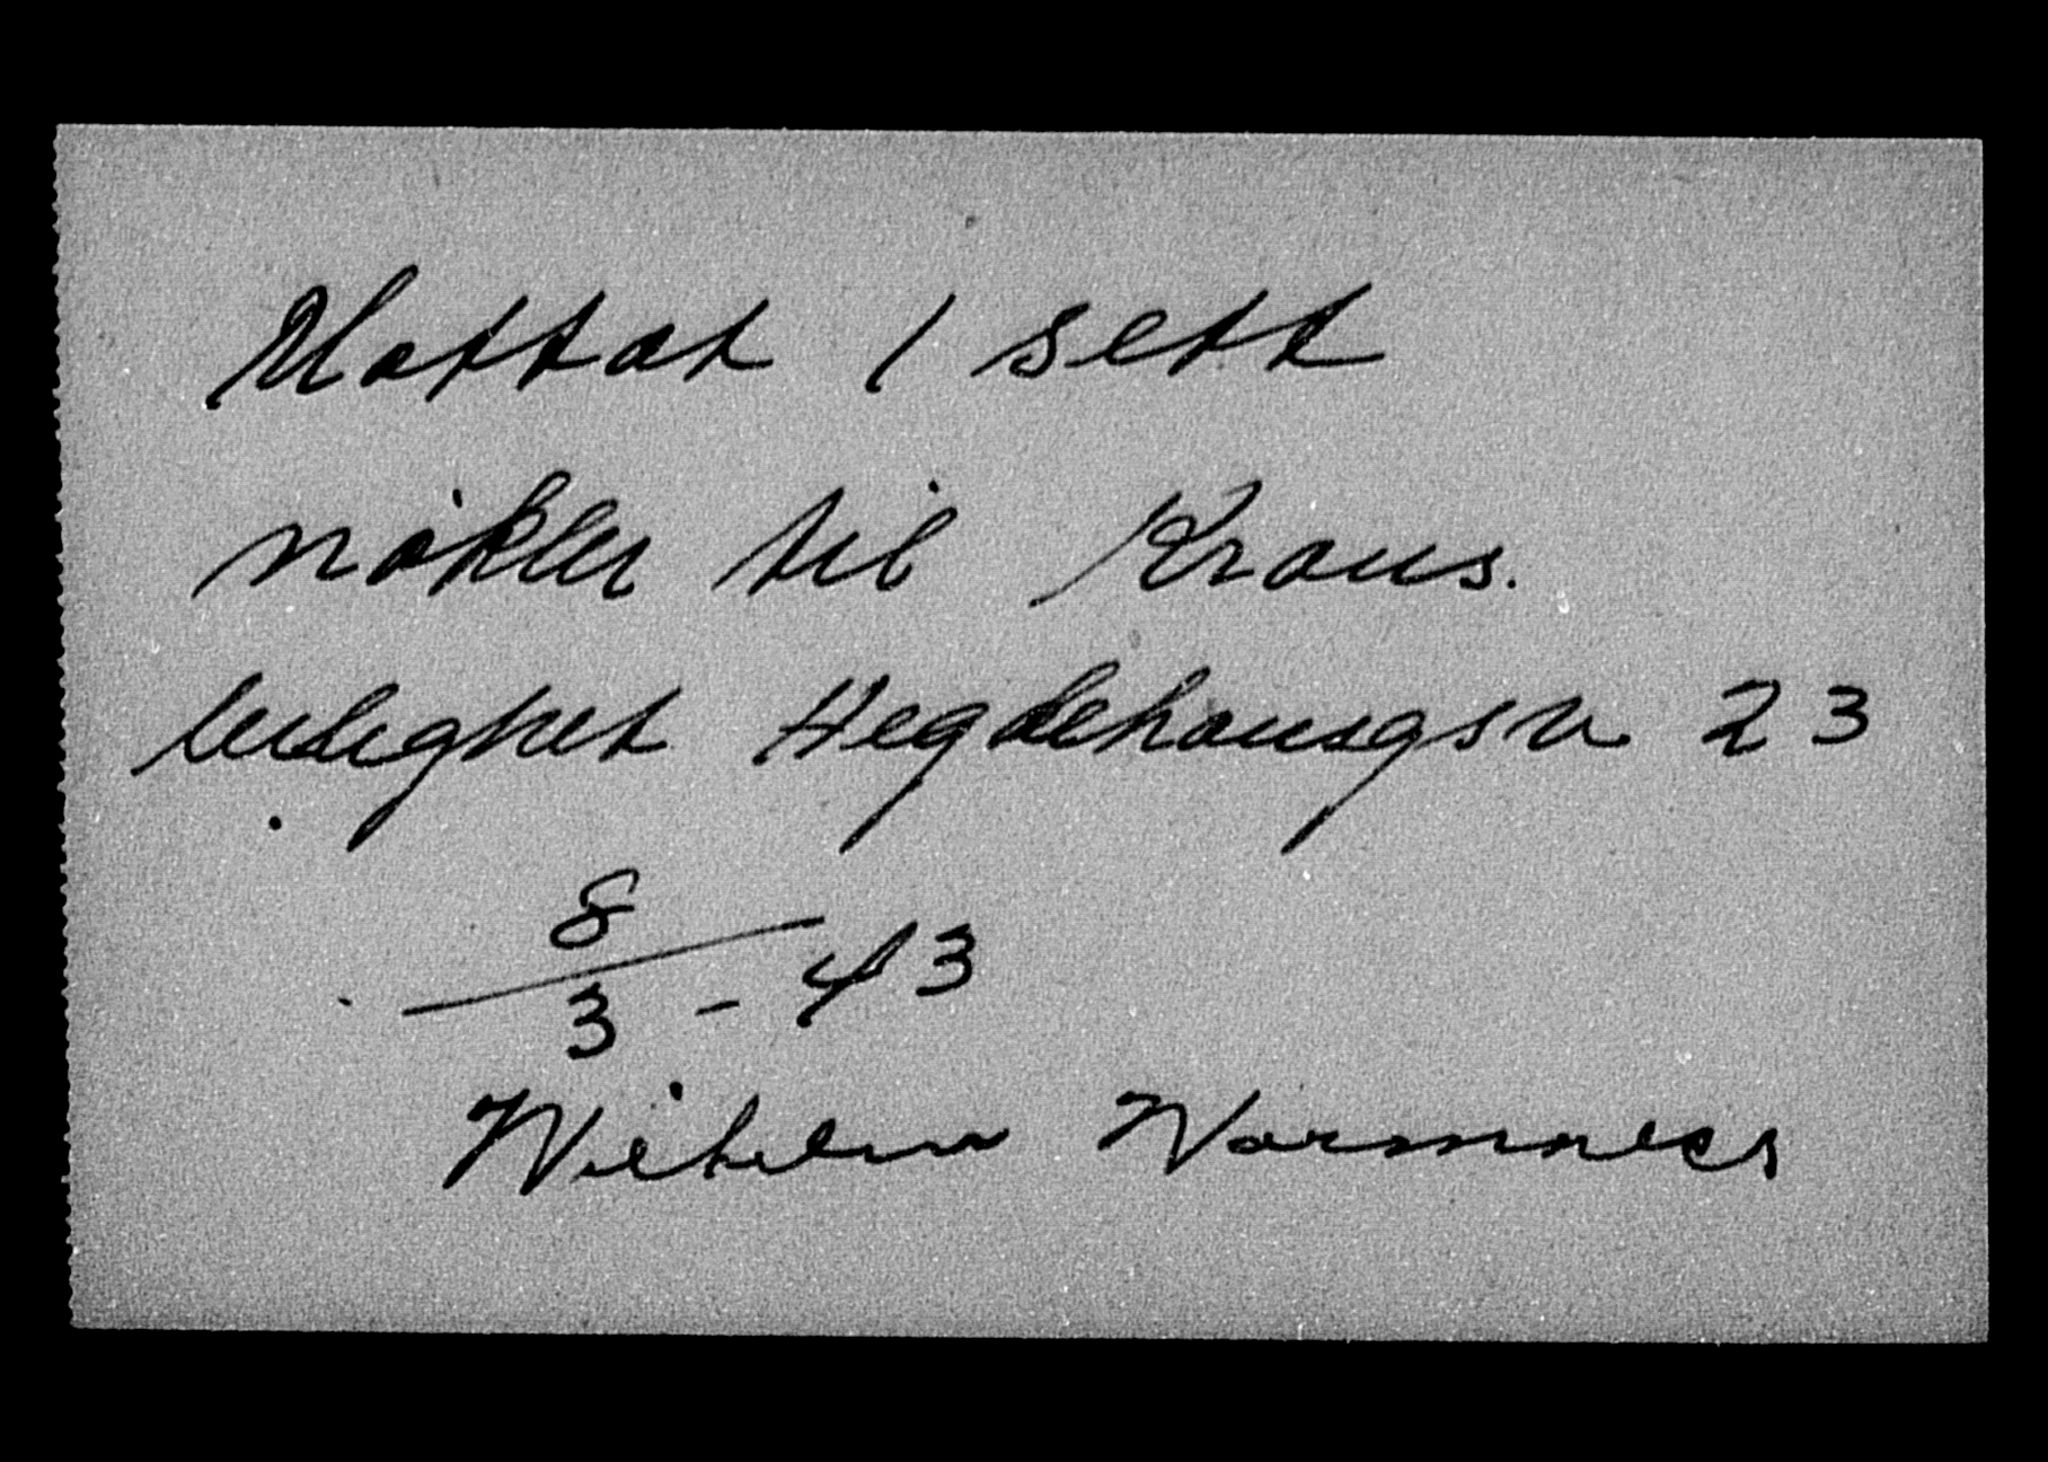 Mottat 1 sett
nökler til Kraus.
leilighet Hegdehausgsv 23
8/3 - 43
Wilhelm Wormness